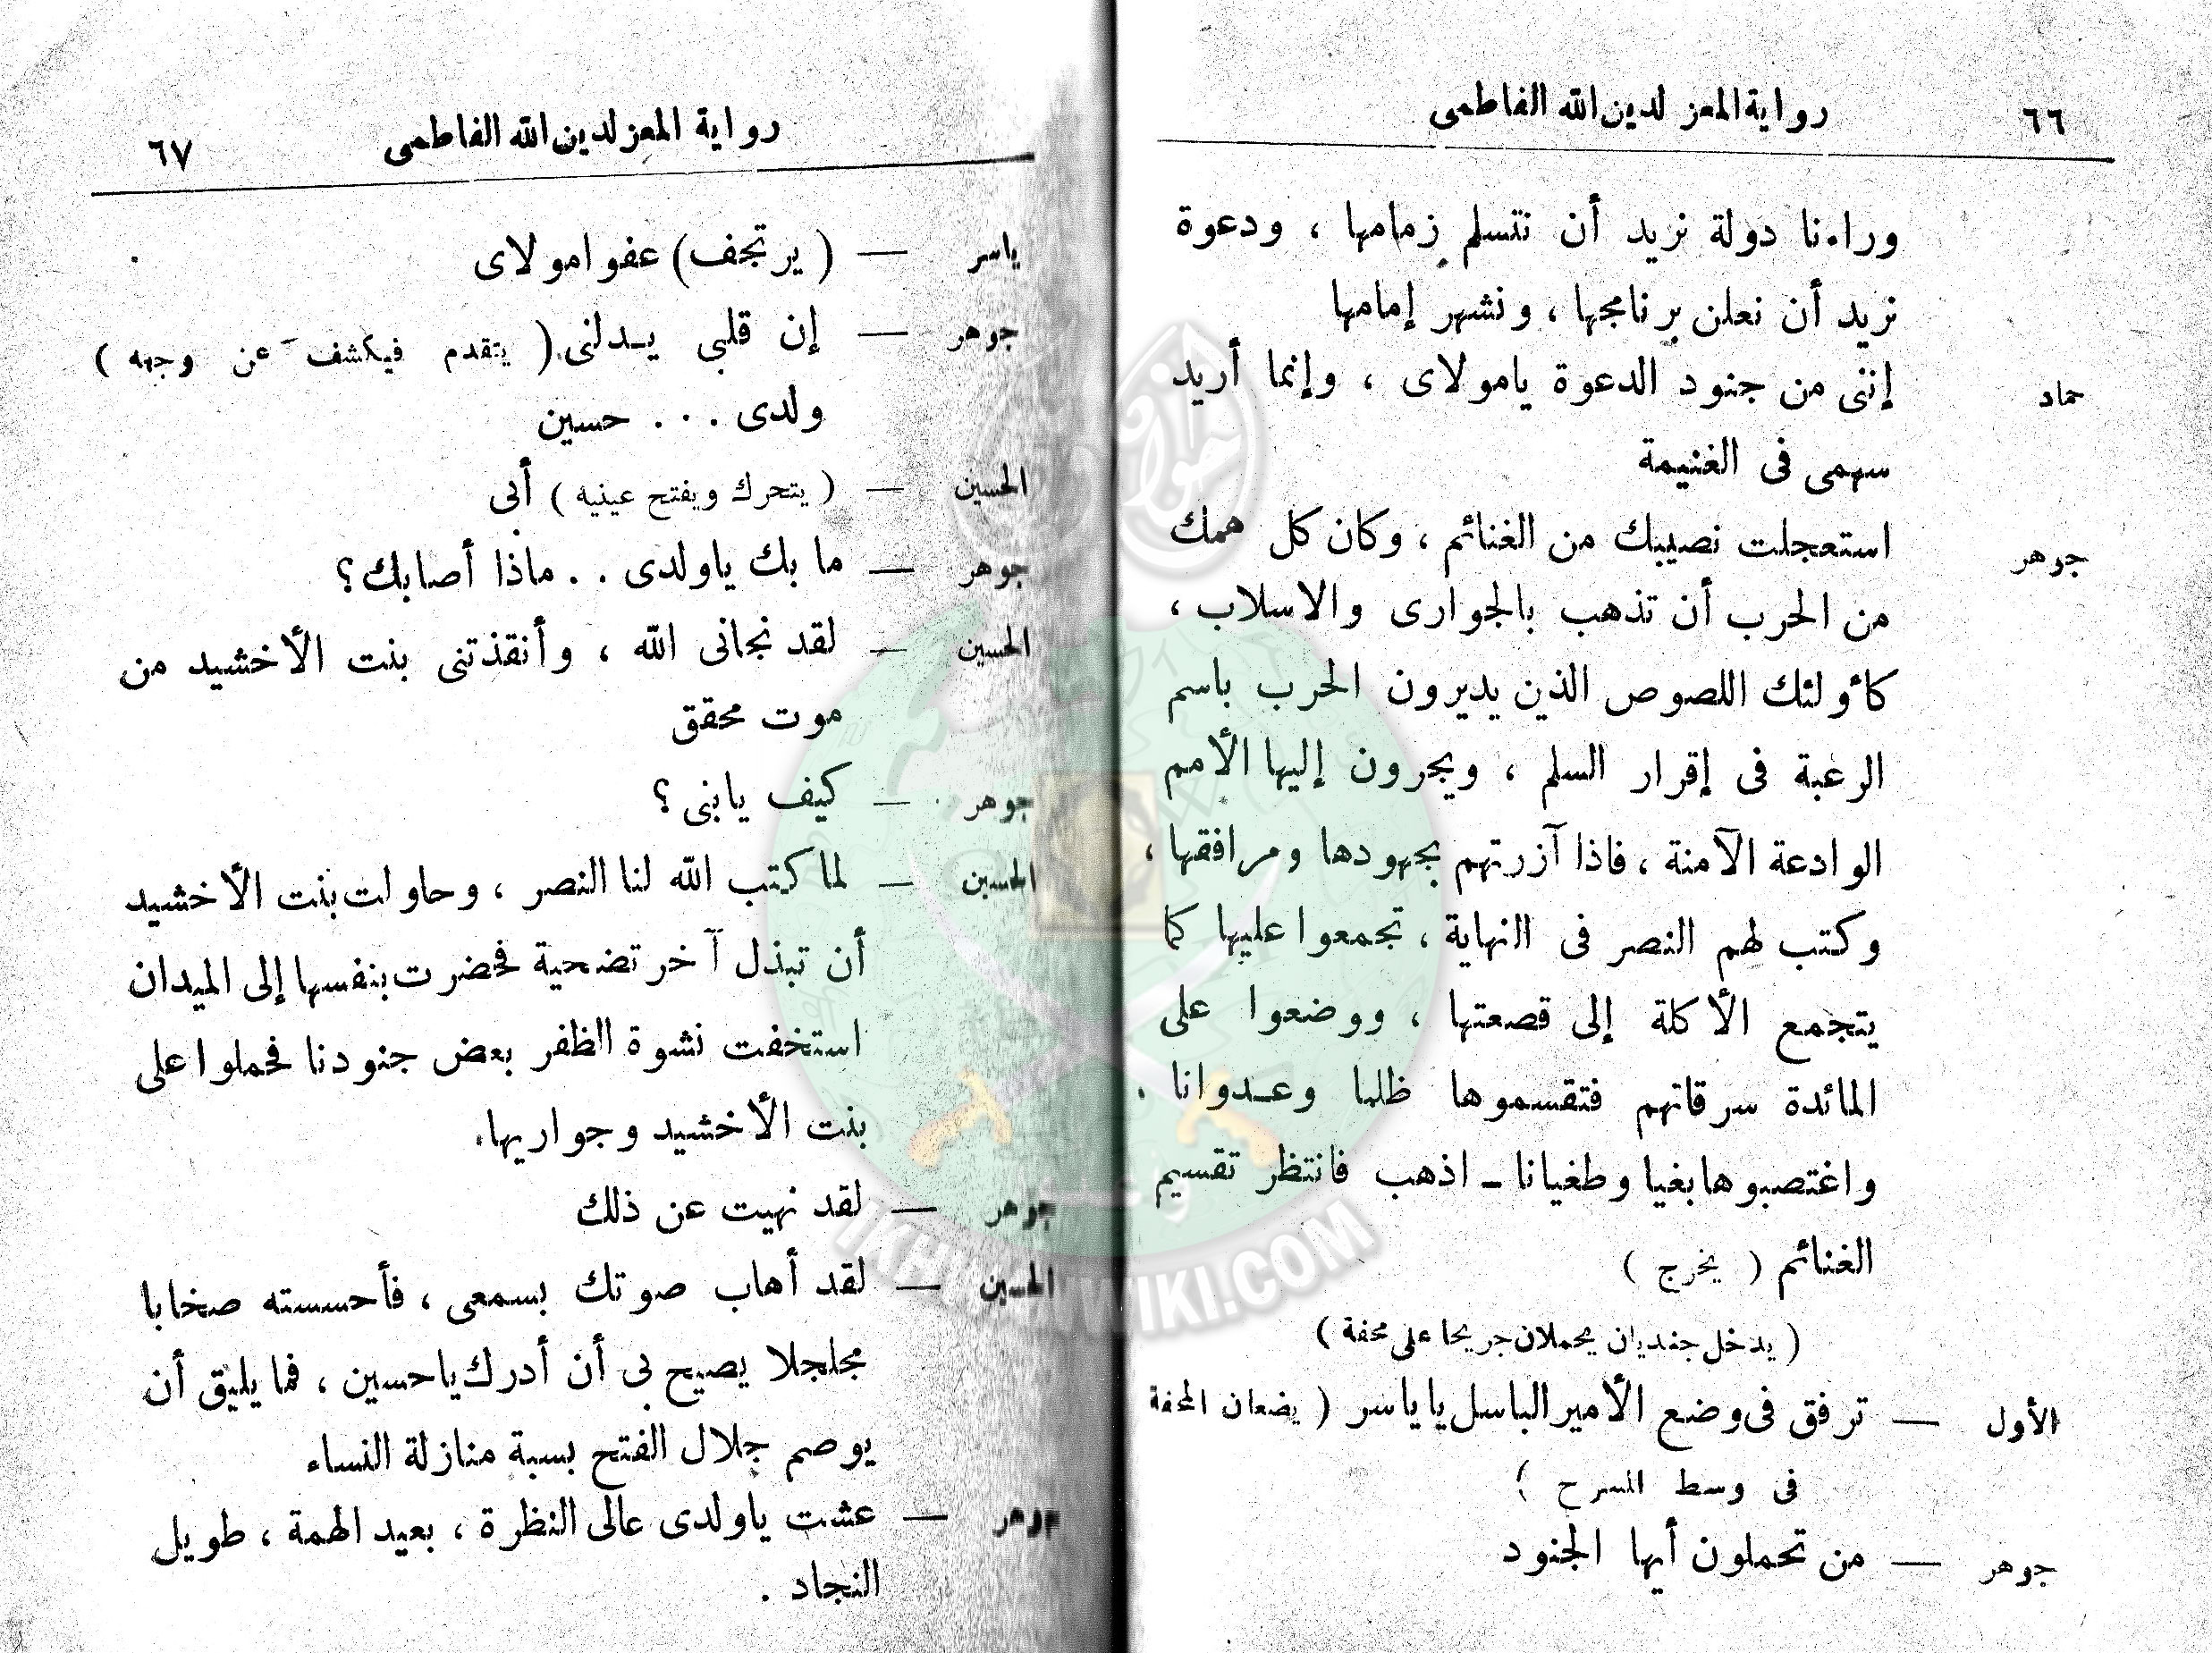 ٦٦ رواية المعز لدين الله الفاطمى
وراءنا دولة نريد أن نتسلم زمامها ، ودعوة
نريد أن نعلن برنامجها ، ونشهر إمامها
حماد إننى من جنود الدعوة يامولاى ، وإنما أريد
سهمى فى الغنيمة
جوهر استعجلت نصيبك من الغنائم ، وكان كل همك
من الحرب أن تذهب بالجوارى والاسلاب ،
كأولئك اللصوص الذين يديرون الحرب باسم
الرغبة فى إقرار السلم ، ويجرون إليها الأمم
الوادعة الآمنة ، فاذا آزرتهم بجهودها ومرافقها ،
وكتب لهم النصر فى النهاية ، تجمعوا عليها كما
يتجمع الأكلة إلى قصعتها ، ووضعوا على
المائدة سرقاتهم فتقسموها ظلما وعدوانا .
واغتصبوها بغيا وطغيانا ـ اذهب فانتظر تقسيم
الغنائم ( يخرج )
( يدخل جنديان يحملان جريحا على محفة )
الأول — ترفق فى وضع الأمير الباسل يا ياسر ( يضعان المحفة
فى وسط المسرح )
جوهر — من تحملون أيها الجنود
رواية المعز لدين الله الفاطمى ٦٧
ياسر — ( يرتجف ) عفوا مولاى
جوهر — إن قلبى يدلنى ( يتقدم فيكشف عن وجهه )
ولدى . . . حسين
الحسين — ( يتحرك ويفتح عينيه ) أبى
جوهر — ما بك ياولدى . . ماذا أصابك ؟
الحسين — لقد نجانى الله ، وأنقذتنى بنت الأخشيد من
موت محقق
جوهر — كيف يابنى ؟
الحسين — لما كتب الله لنا النصر ، وحاولت بنت الأخشيد
أن تبذل آخر تضحية فحضرت بنفسها إلى الميدان
استخفت نشوة الظفر بعض جنودنا فحملوا على
بنت الأخشيد وجواريها.
جوهر — لقد نهيت عن ذلك
الحسين — لقد أهاب صوتك بسمعى ، فأحسسته صخابا
مجلجلا يصيح بى أن أدرك ياحسين ، فما يليق أن
يوصم جلال الفتح بسبة منازلة النساء
جوهر — عشت ياولدى عالى النظرة ، بعيد الهمة ، طويل
النجاد .